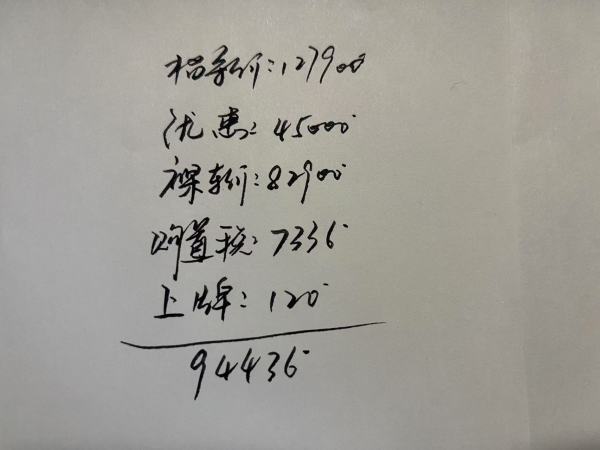 指导价:127900
优惠:45000
裸车价:82900
购置税:7336
上牌:120
94436